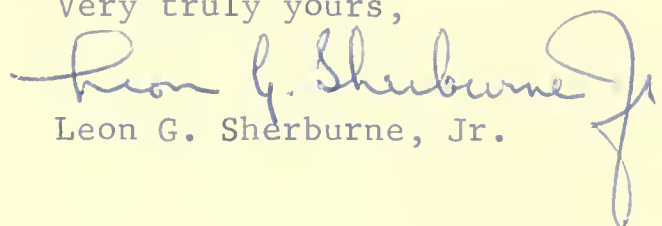 Very truly yours,
Leon G. Sherburne Jr
Leon G. Sherburne, Jr.